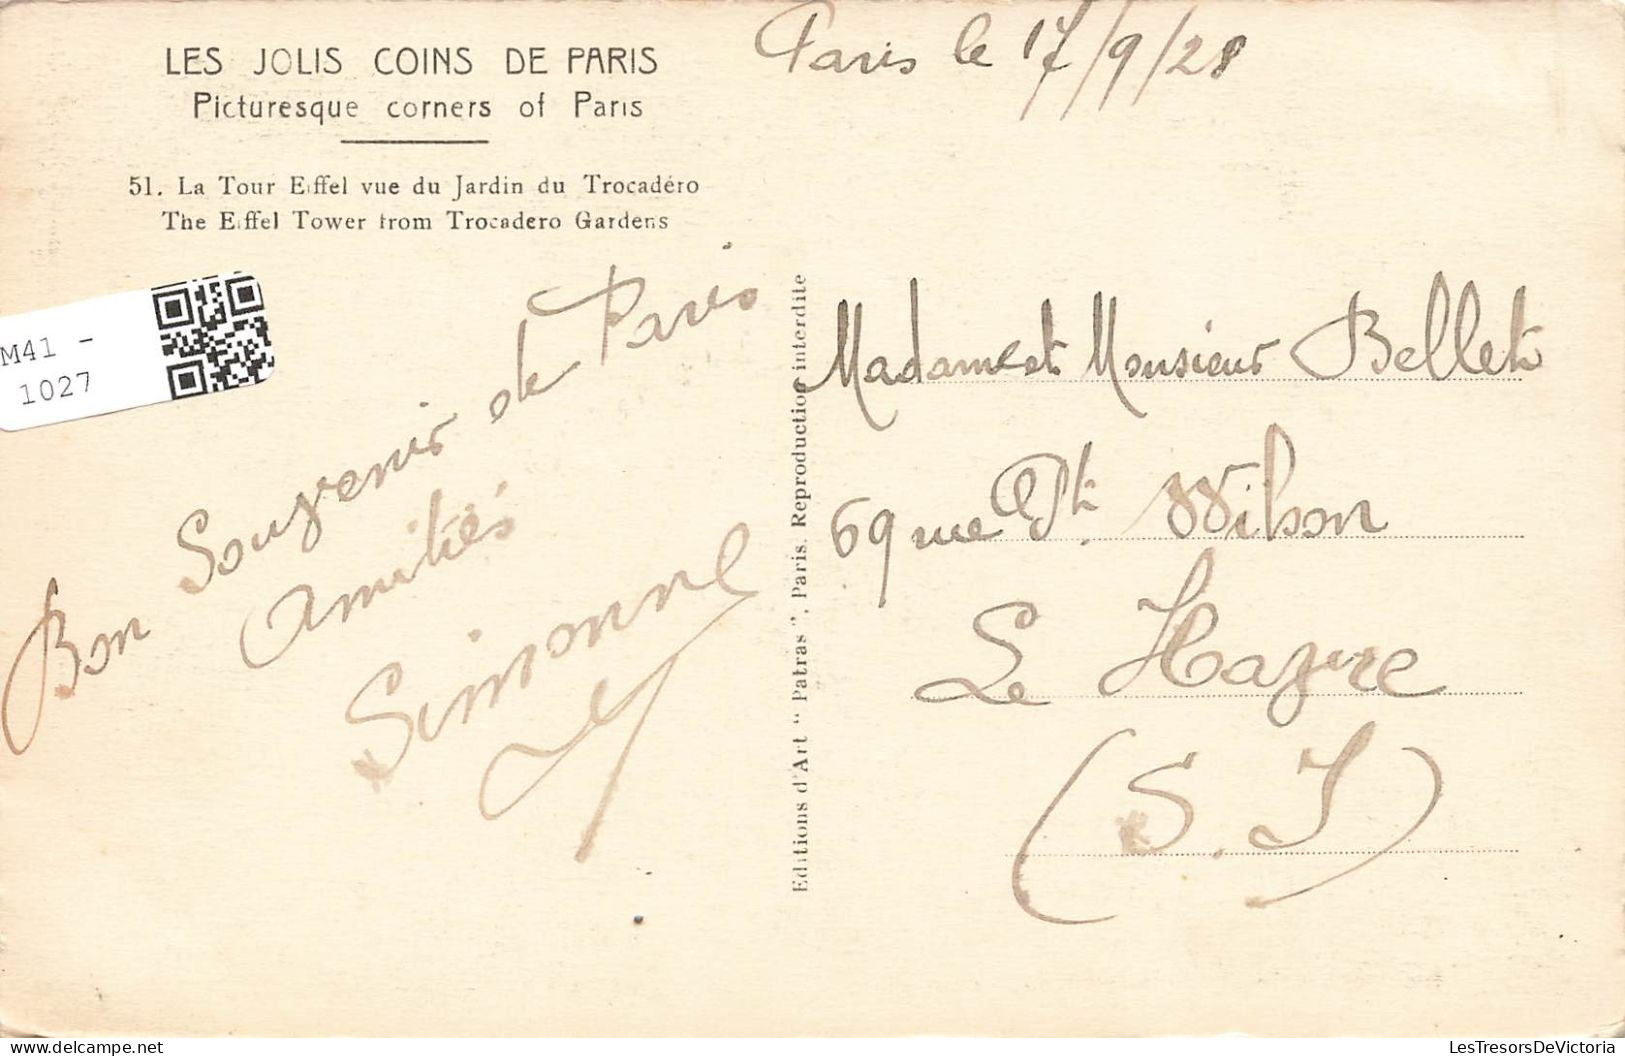 LES JOLIS COINS DE PARIS
Picturesque corners of Paris
51. La Tour Eiffel vue du Jardin du Trocadéro
The Eiffel Tower from Trocadero Gardens
Paris le 17/9/28
M41 -
1027
Bon Souvenir de Paris
Amitiés
Simonne
Editions d'Art "Patras", Paris. Reproduction interdite
Madame et Monsieur Bellet
69 rue Pt. Wilson
Le Havre
(S. I)
LesTresorsDeVictoria delcampe.net